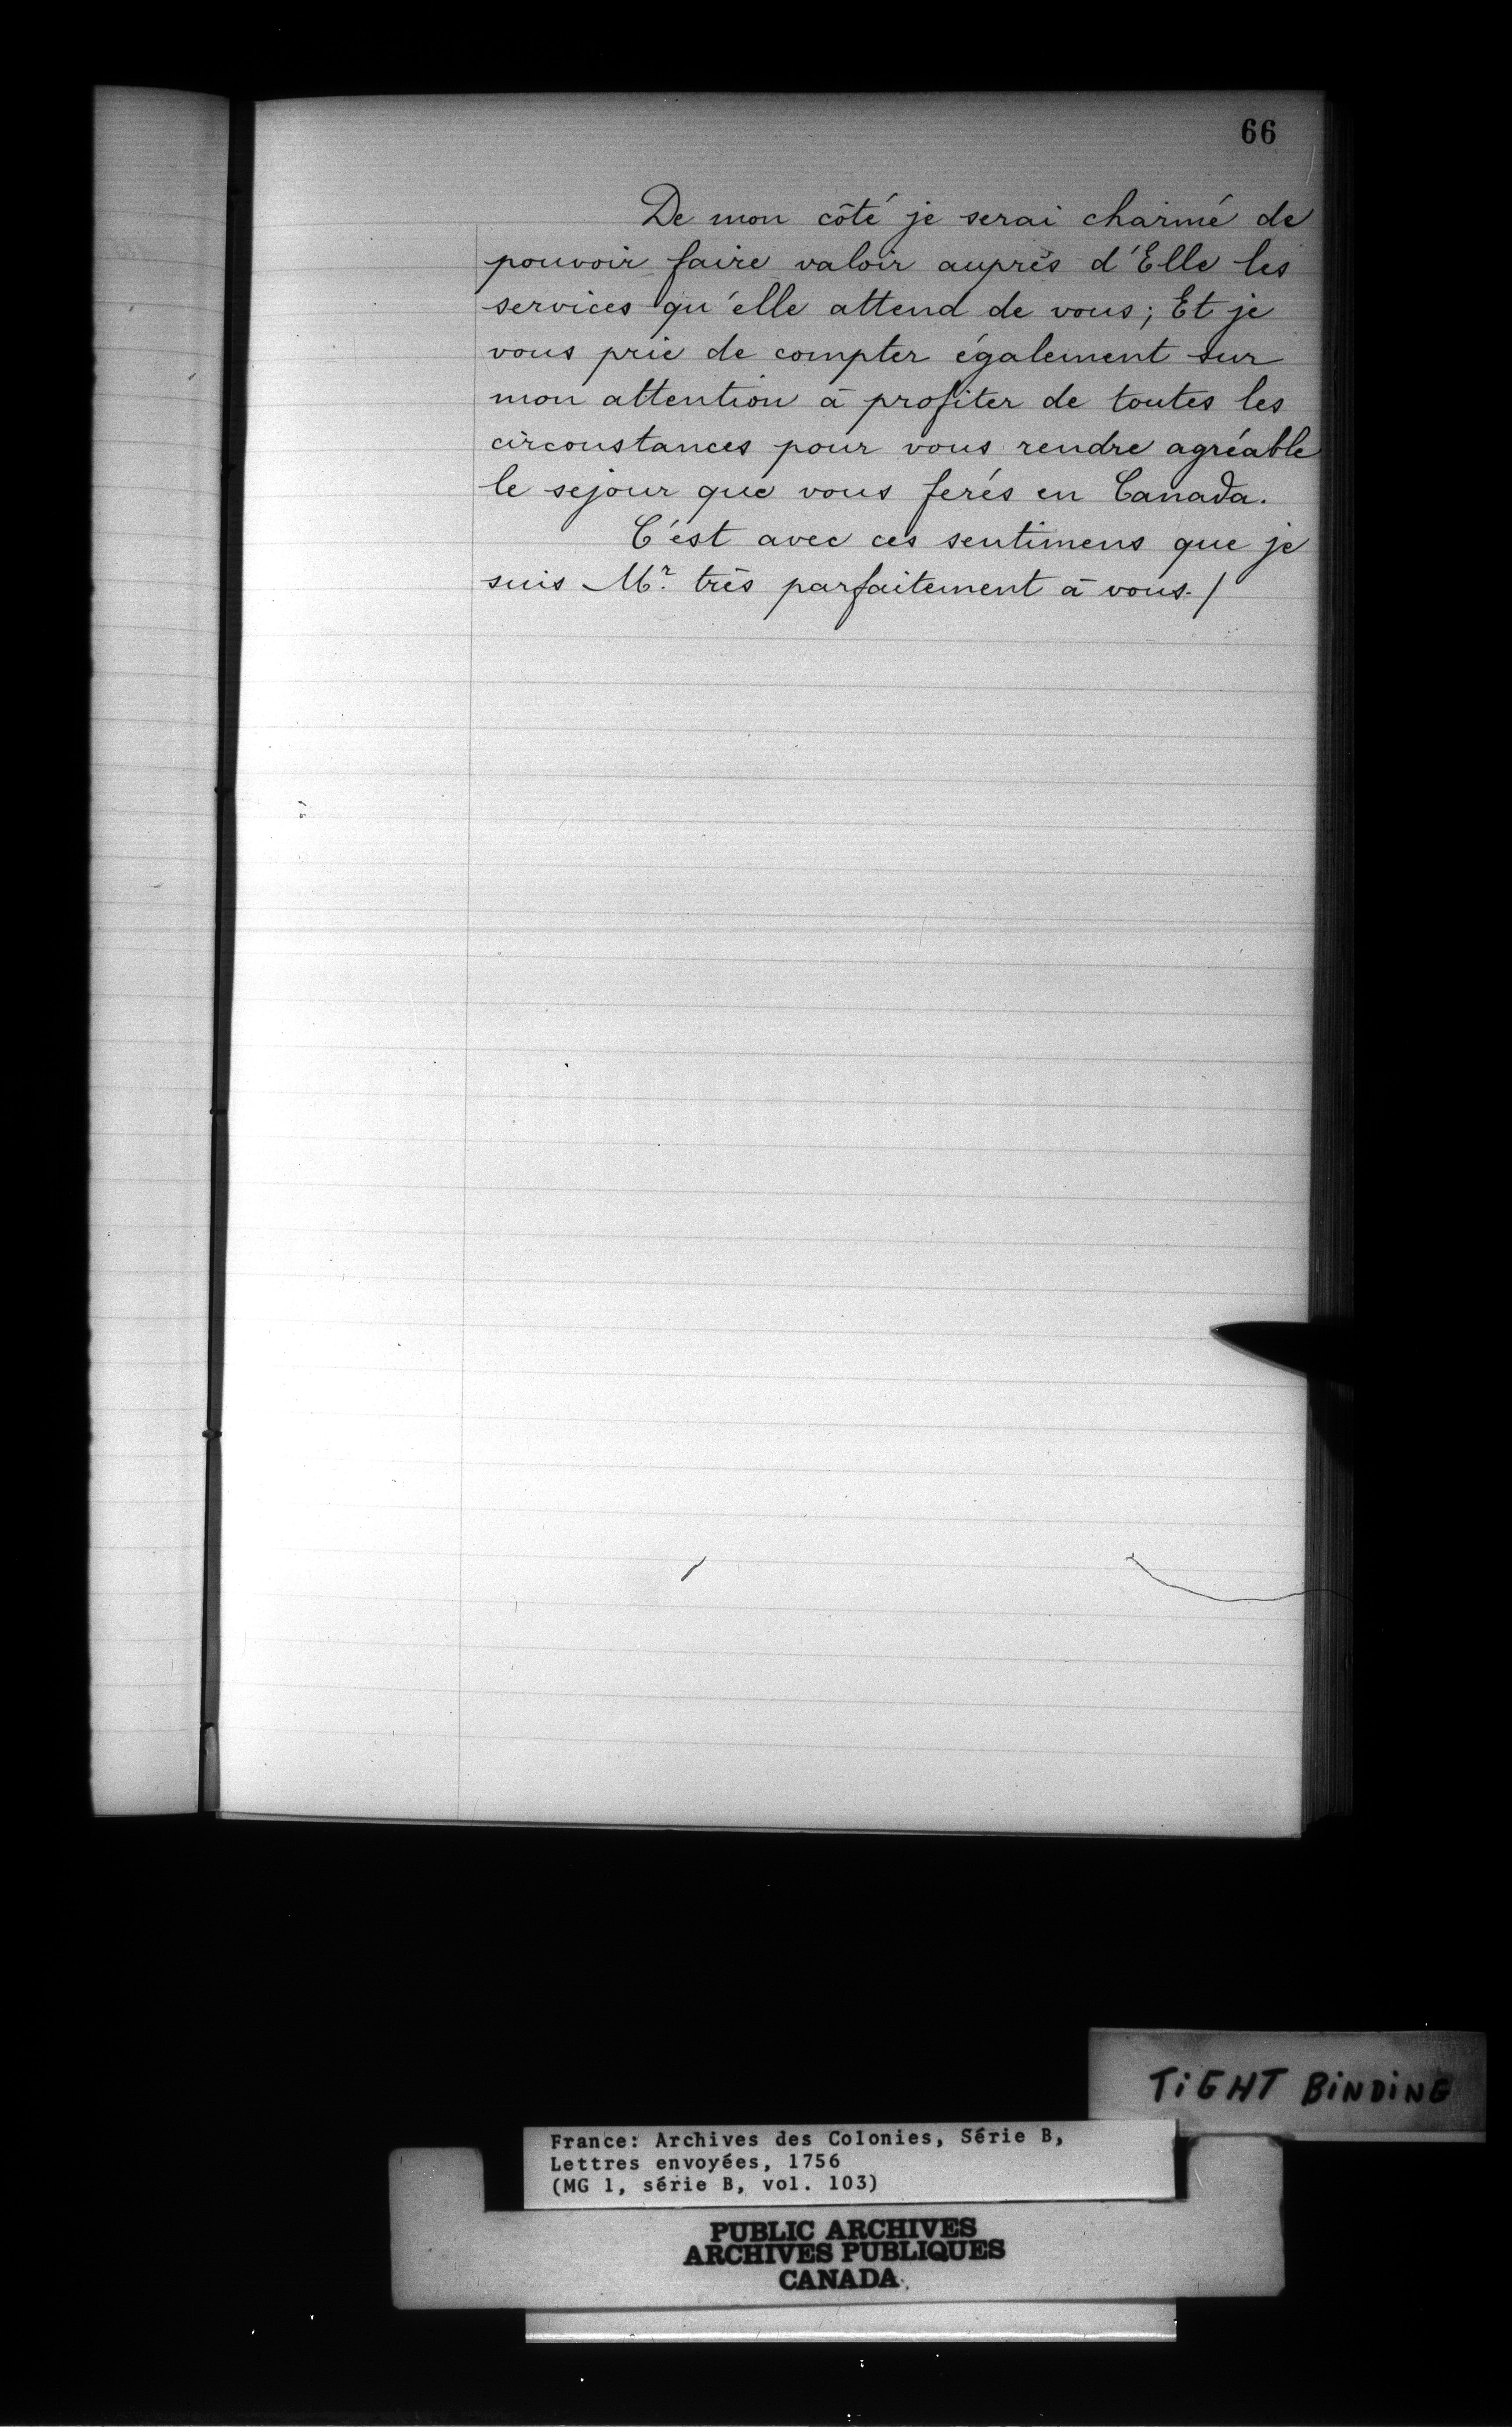 66
De mon côté je serai charmé de
pouvoir faire valoir auprès d'Elle les
services qu'elle attend de vous; Et je
vous prie de compter également sur
mon attention à profiter de toutes les
circonstances pour vous rendre agréable
le sejour que vous ferés en Canada.
C'est avec ces sentimens que je
suis Mr. très parfaitement à vous./
TIGHT BINDING
France: Archives des Colonies, Série B,
Lettres envoyées, 1756
(MG 1, série B, vol. 103)
PUBLIC ARCHIVES
ARCHIVES PUBLIQUES
CANADA